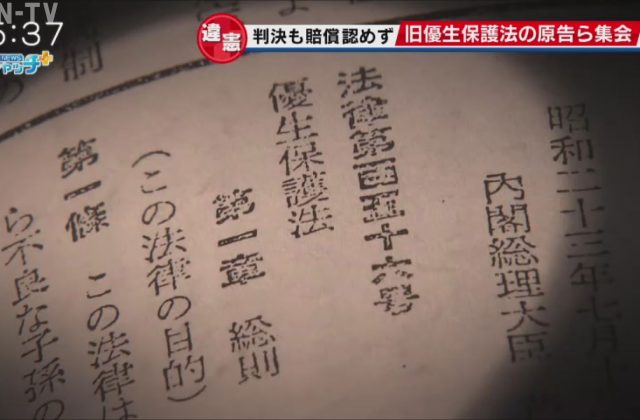 N-TV
5:37
NEWS
キャッチ+
違憲
判決も賠償認めず
旧優生保護法の原告ら集会
昭和二十三年七月十
内閣総理大臣
法律第百五十六号
優生保護法
第一章 総則
(この法律の目的)
第一條 この法律は
ら不良な子孫の
制